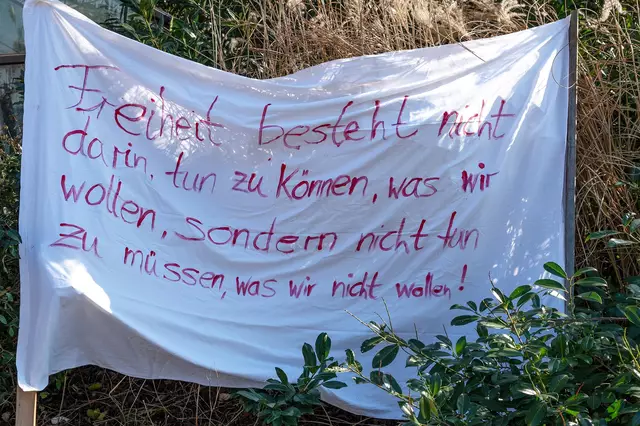 Freiheit besteht nicht
darin, tun zu können, was wir
wollen, sondern nicht tun
zu müssen, was wir nicht wollen!